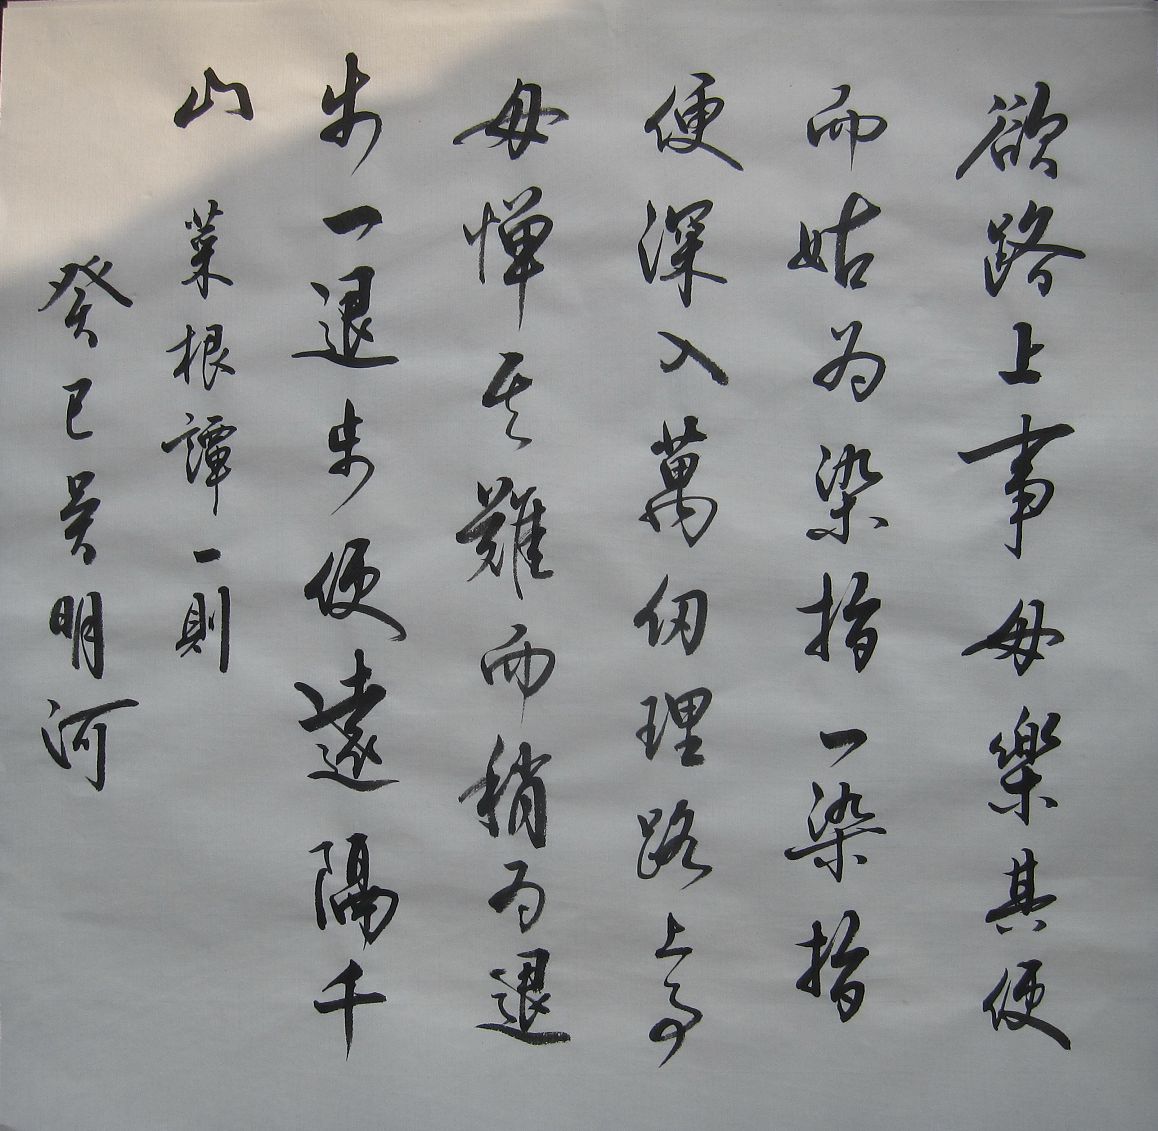 欲路上事毋樂其便
而姑為染指一染指
便深入萬仞理路上事
毋憚其難而稍為退
步一退步便遠隔千
山
菜根譚一則
癸巳吳明河